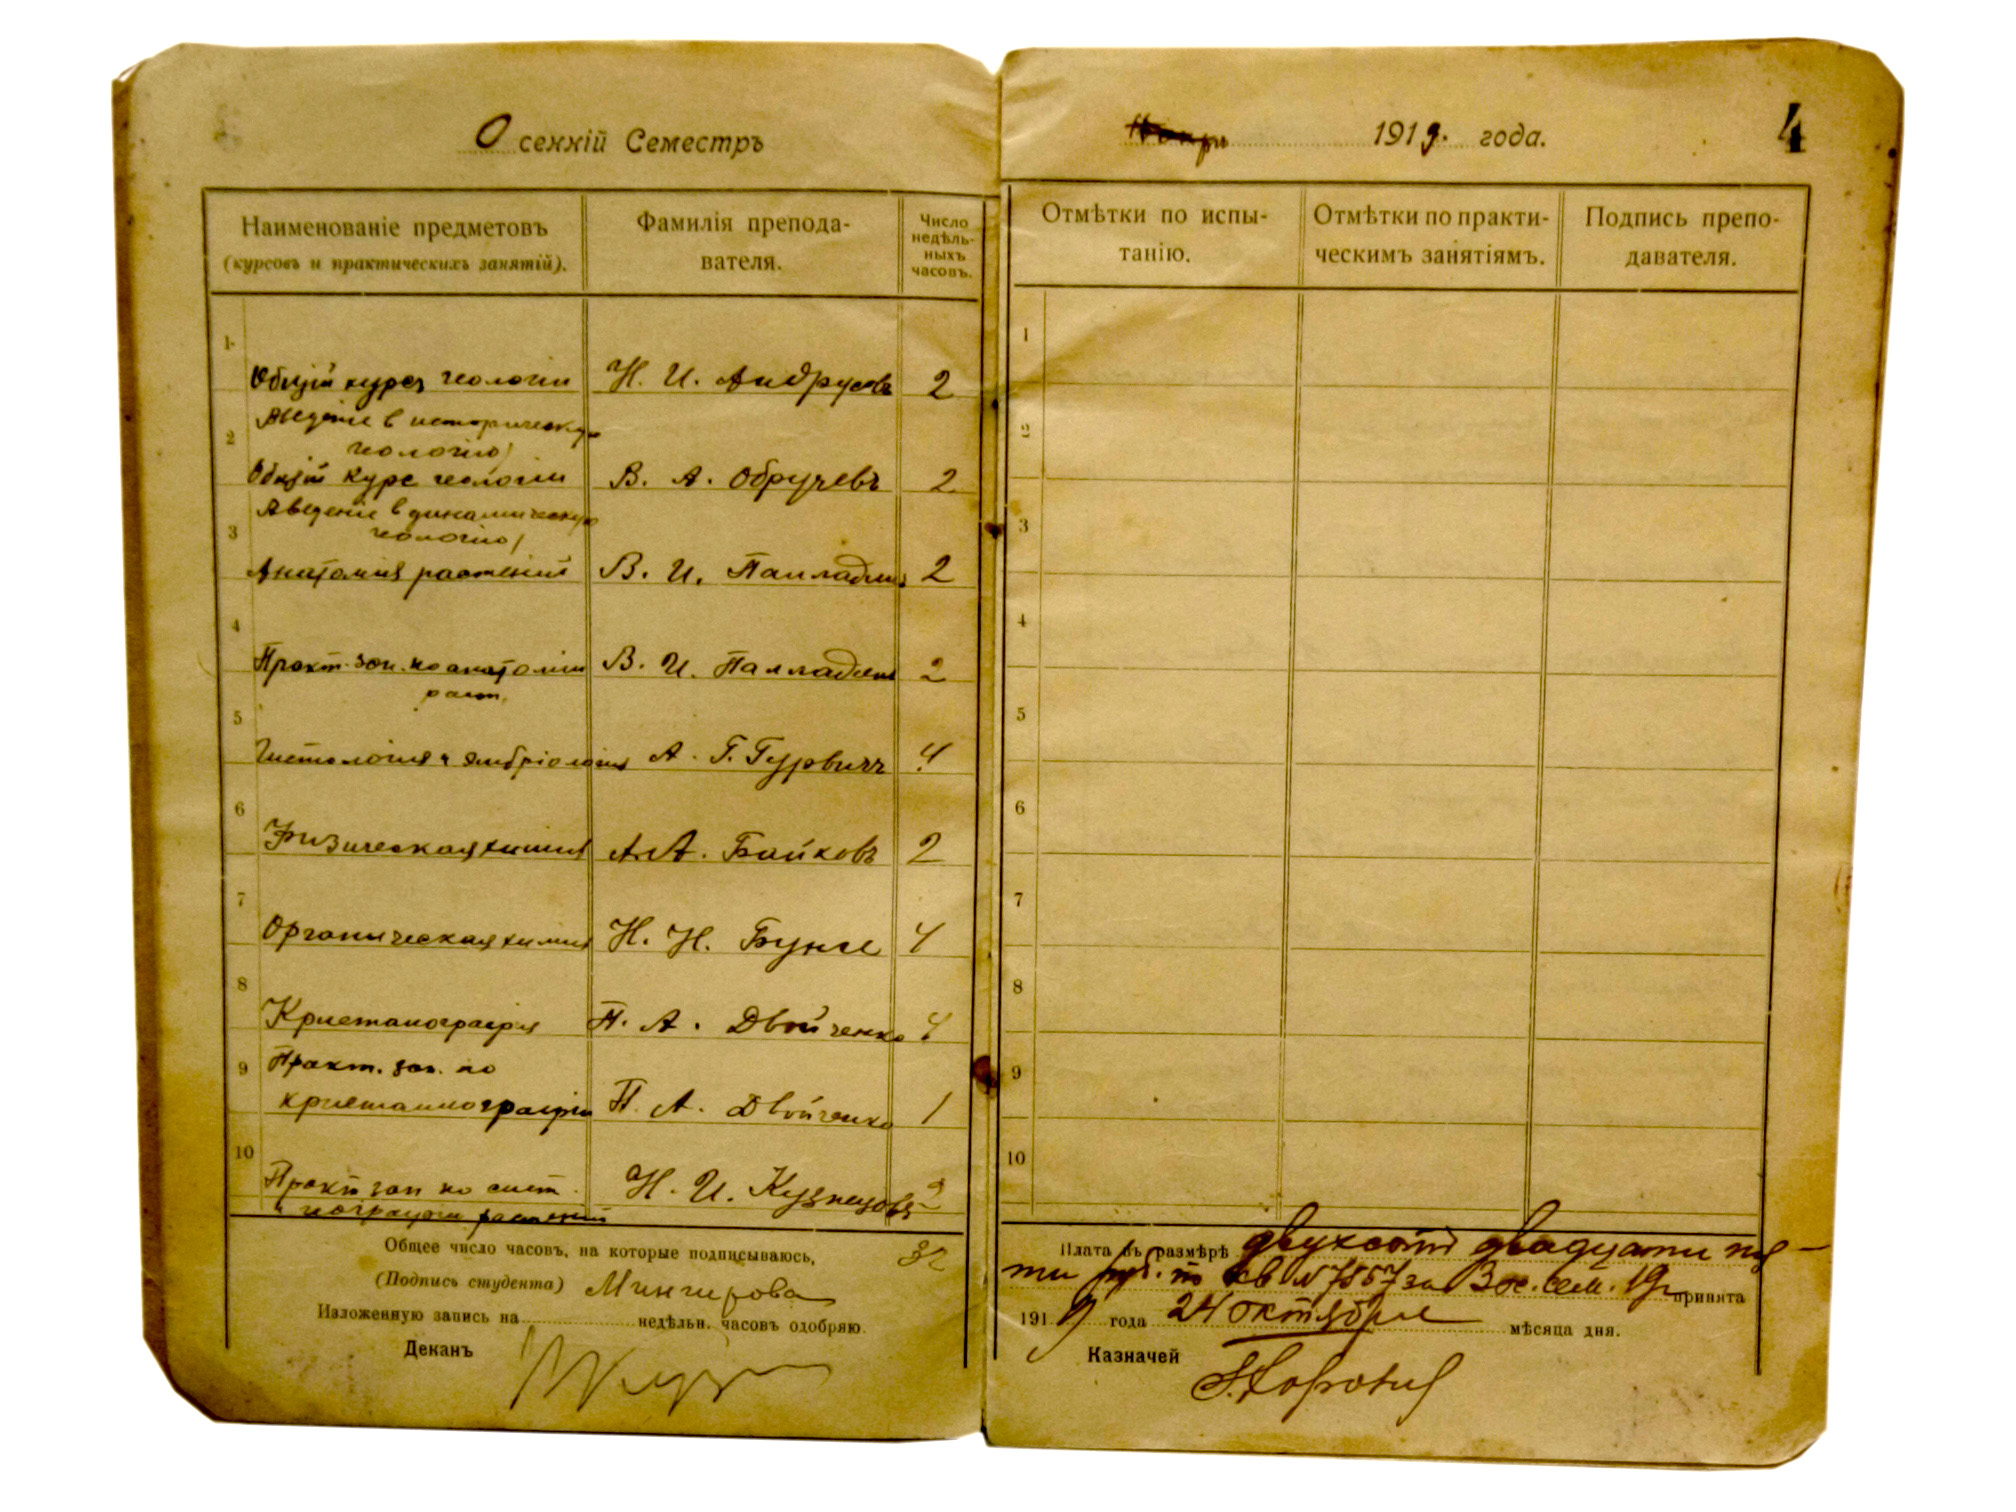 Осенній Семестръ
1919. года.
4
Наименованіе предметовъ
(курсовъ и практическихъ занятій).
Фамилія препода-
вателя.
Число
недѣль-
ныхъ
часовъ.
Отмѣтки по испы-
танію.
Отмѣтки по практи-
ческимъ занятіямъ.
Подпись препо-
давателя.
1
Общій курсъ геологіи Н. И. Андрусовъ 2
Введеніе в историческую
геологію)
2
Общій курс геологіи В. А. Обручевъ 2
Введеніе в динамическую
геологію)
3
Анатомия растений В. И. Палладин 2
4
Практ. зан. по анатоміи В. И. Палладин 2
раст.
5
Гистология и эмбріология А. Г. Гурвичъ 4
6
Физическая химия А. А. Байковъ 2
7
Органическая химия Н. Н. Бунге 4
8
Кристалография П. А. Двойченко 4
9
Практ. зан. по
кристаллографіи П. А. Двойченко 1
10
Практ зан по сист. Н. И. Кузнецовъ 2
растений
Общее число часовъ, на которые подписываюсь, 32
(Подпись студента)
Изложенную запись на недѣльн. часовъ одобряю.
Деканъ
1
2
3
4
5
6
7
8
9
10
Плата въ размѣрѣ двухсотъ двадцати пя-
ти руб. по кв N 7557 за Ос. сем. 19 г принята
1919 года 24 октября мѣсяца дня.
Казначей